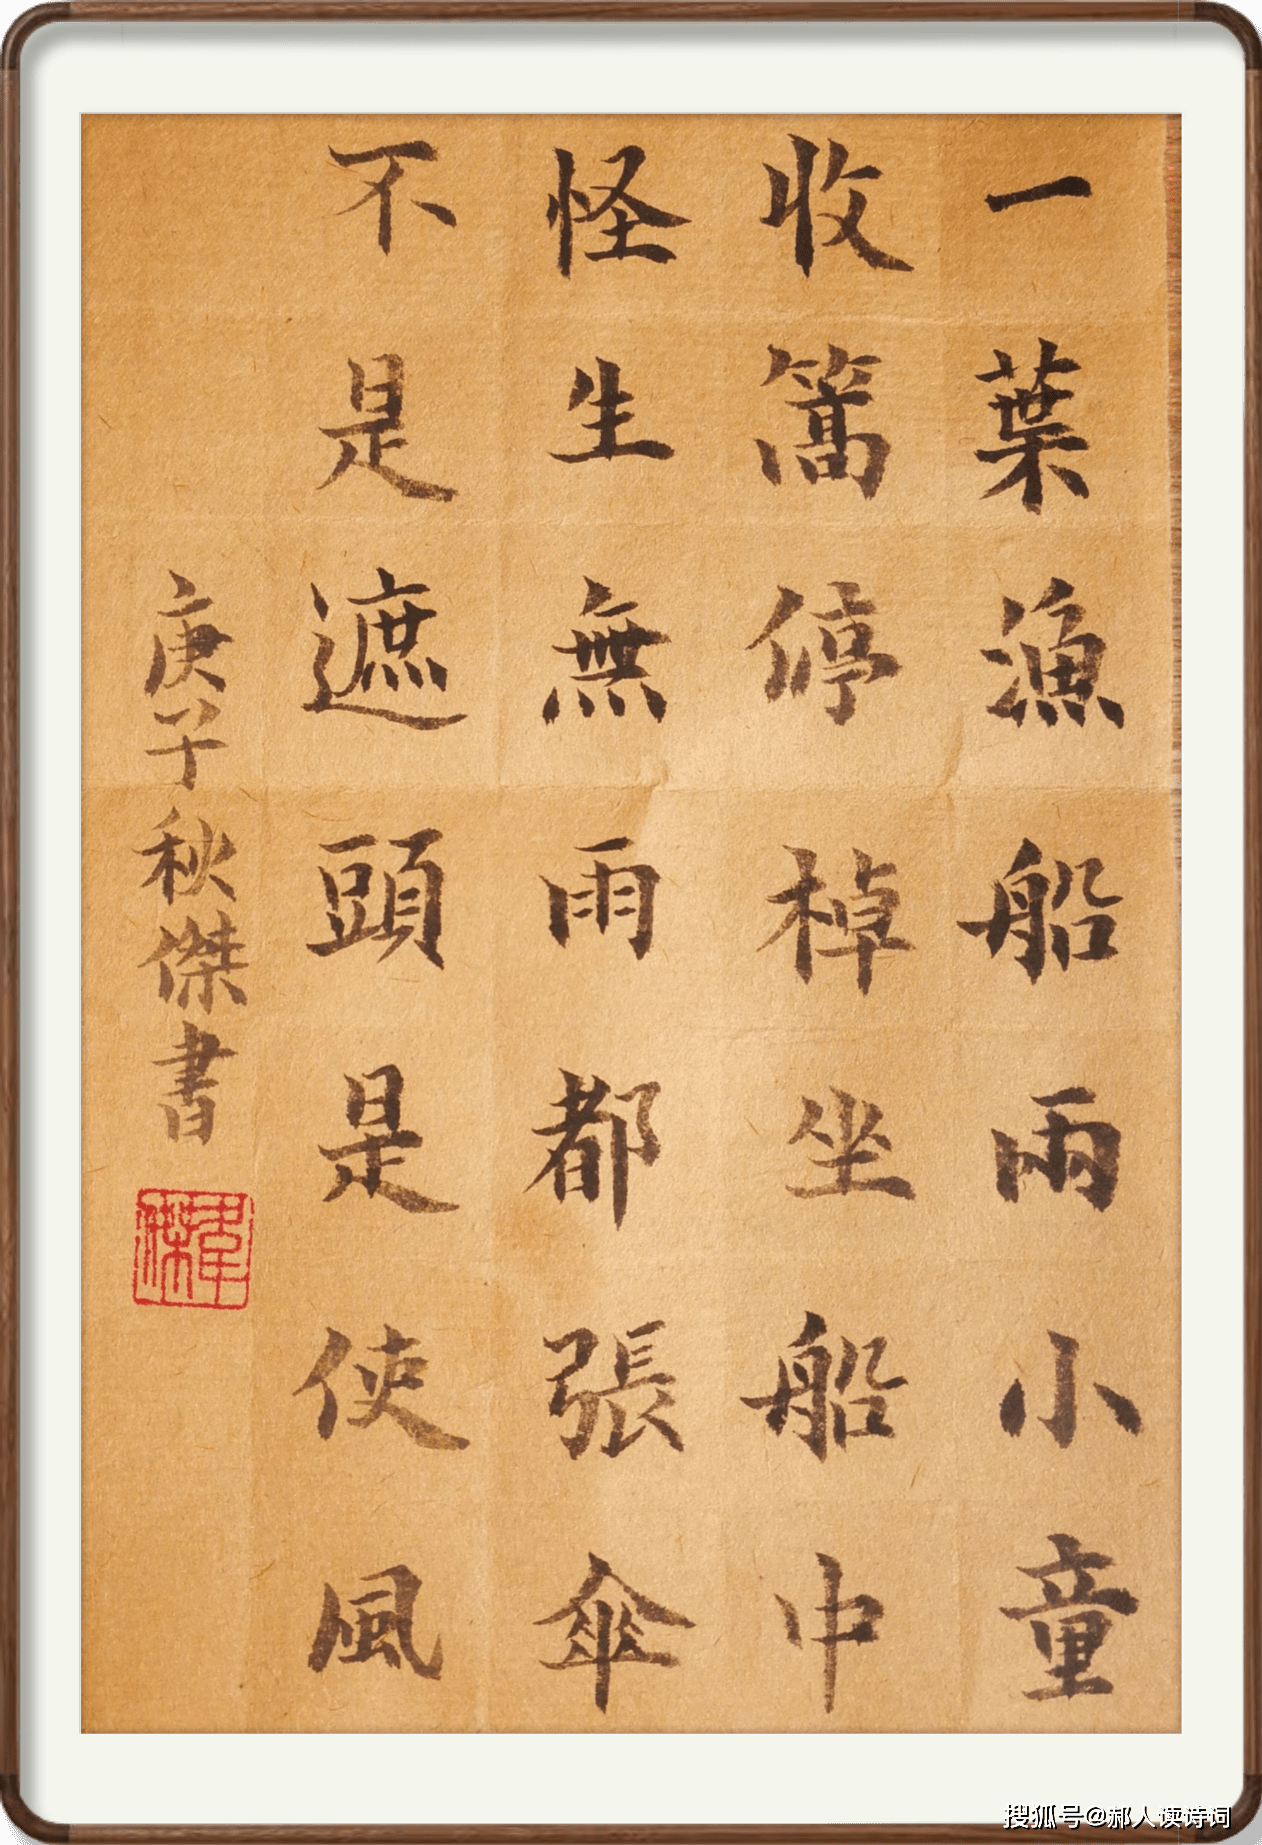 一葉漁船兩小童
收篙停棹坐船中
怪生無雨都張傘
不是遮頭是使風
庚子秋傑書
搜狐号@郝人读诗词